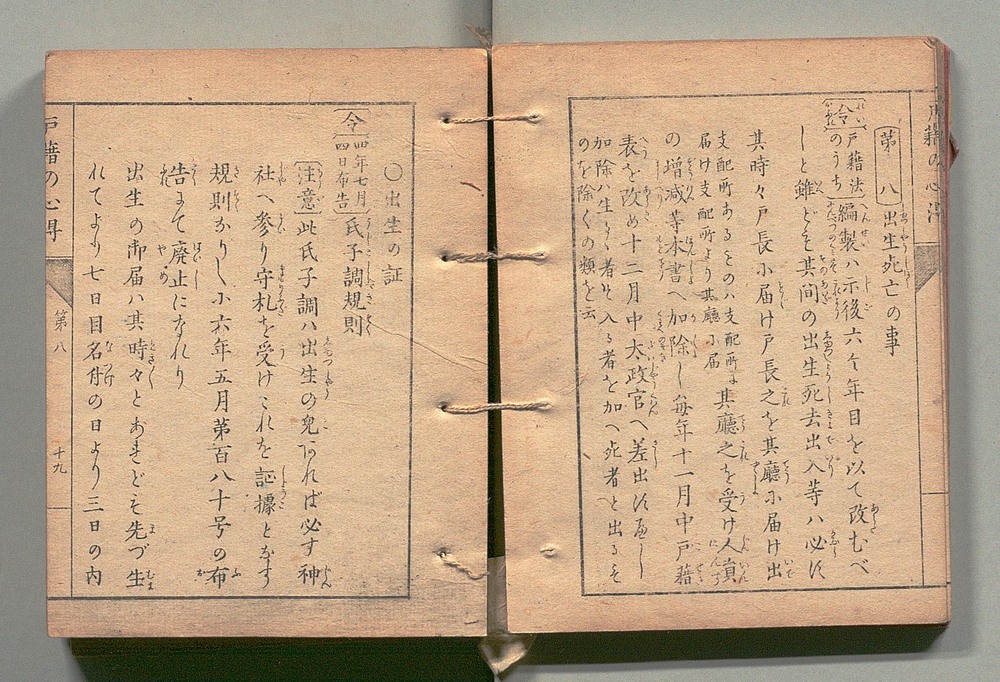 戸籍の心得
第八 出生死亡の事
〔令〕戸籍法のうち編製ハ示後六ケ年目を以て改むべ
しと雖ども其间の出生死去出入等ハ必ず
其時々戸長に届け戸長之を其廳に届け出
支配所あるものハ支配所より其廳に届け支配所より其廳之を受け人員
の増減等本書へ加除し每年十一月中戸籍
表を改め十二月中太政官へ差出すべし
加除ハ生るゝ者や入る者を加へ死者と出るも
のを除くの類を云
○出生の証
〔令〕四年七月四日布告 氏子調規則
〔注意〕此氏子調ハ出生の兒あれば必す神
社へ参り守札を受けこれを証據となす
規則なりしに六年五月第百八十号の布
告にて廃止になれり
出生の御届ハ其時々とあれども先づ生
れてより七日目名付の日より三日の内
戸籍の心得
第八
十九